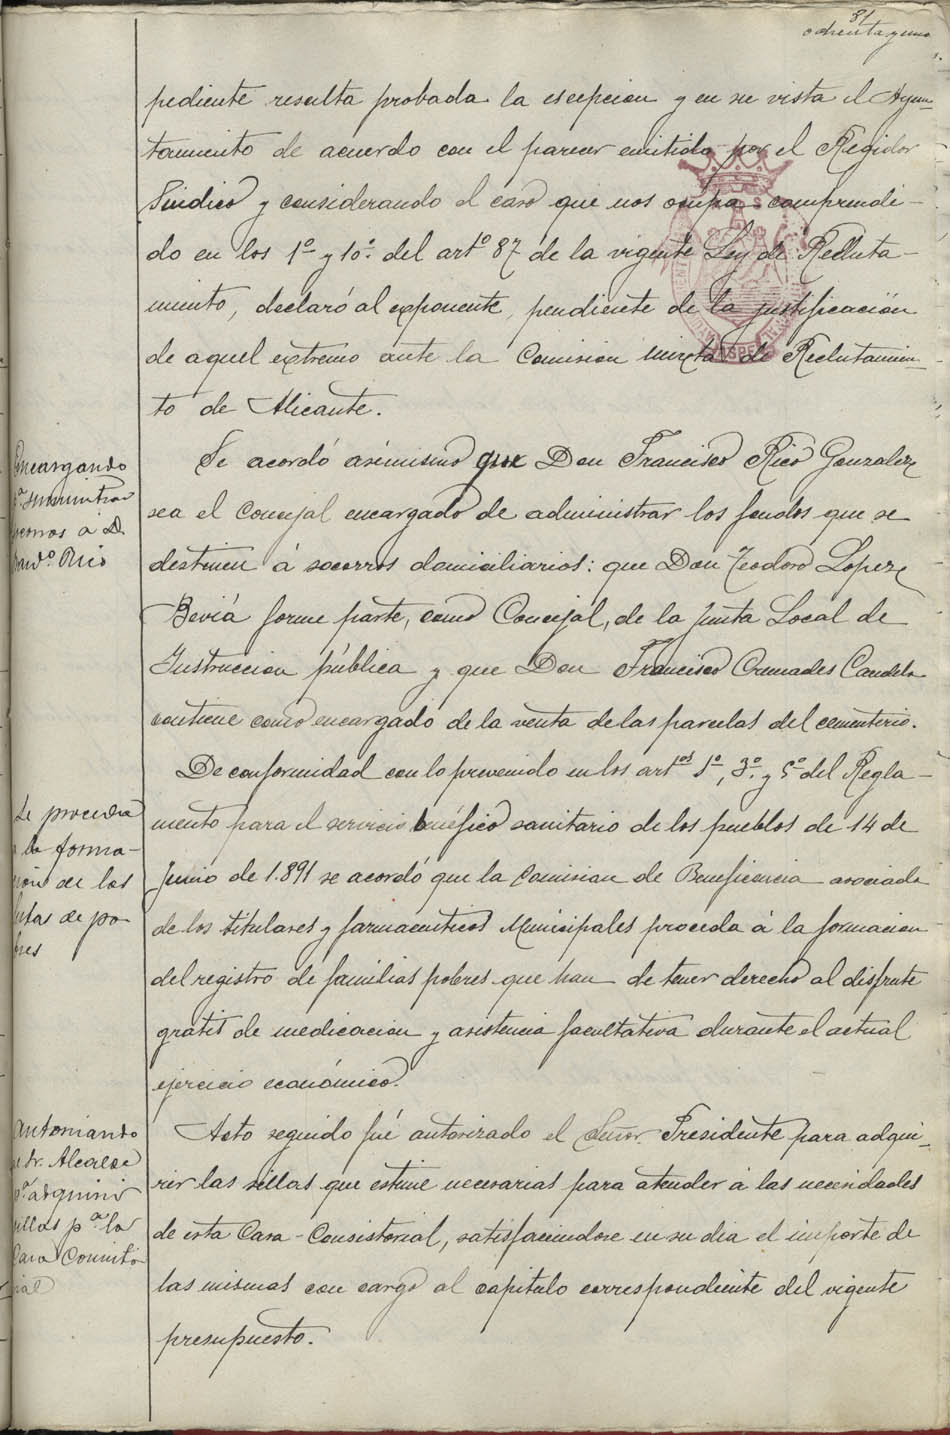 81
ochenta y uno
pediente resulta probada la escepcion y en su vista el Ayun-
tamiento de acuerdo con el parecer emitido por el Regidor
Sindico y considerando el caso que nos ocupa comprendi-
do en los 1º y 10º del artº 87 de la vigente Ley de Recluta-
miento, declaró al exponente, pendiente de la justificación
de aquel extremo ante la Comision mixta de Reclutamien-
to de Alicante.
Encargando
pª suministrar
socorros a D.
Francº Rico
Se acordó asimismo que Don Francisco Rico Gonzalez
sea el Concejal encargado de administrar los fondos que se
destinen á socorros domiciliarios: que Don Teodoro Lopez
Beviá forme parte, como Concejal, de la Junta Local de
Instruccion pública y que Don Francisco Crumades Candela
continue como encargado de la venta de las parcelas del cementerio.
Se proceda
a la forma-
ción de las
listas de po-
bres
De conformidad con lo prevenido en los artºs 1º, 3º y 5º del Regla-
mento para el servicio benéfico sanitario de los pueblos de 14 de
Junio de 1.891 se acordó que la Comision de Beneficencia asociada
de los titulares y farmaceuticos Municipales proceda á la formacion
del registro de familias pobres que han de tener derecho al disfrute
gratis de medicacion y asistencia facultativa durante el actual
ejercicio económico.
Autoriando
al Sr. Alcalde
pª adquirir
sillas pª la
Casa Consisto
rial
Acto seguido fué autorizado el Señor Presidente para adqui-
rir las sillas que estime necesarias para atender á las necesidades
de esta Casa-Consistorial, satisfaciendose en su dia el importe de
las mismas con cargo al capitulo correspondiente del vigente
presupuesto.